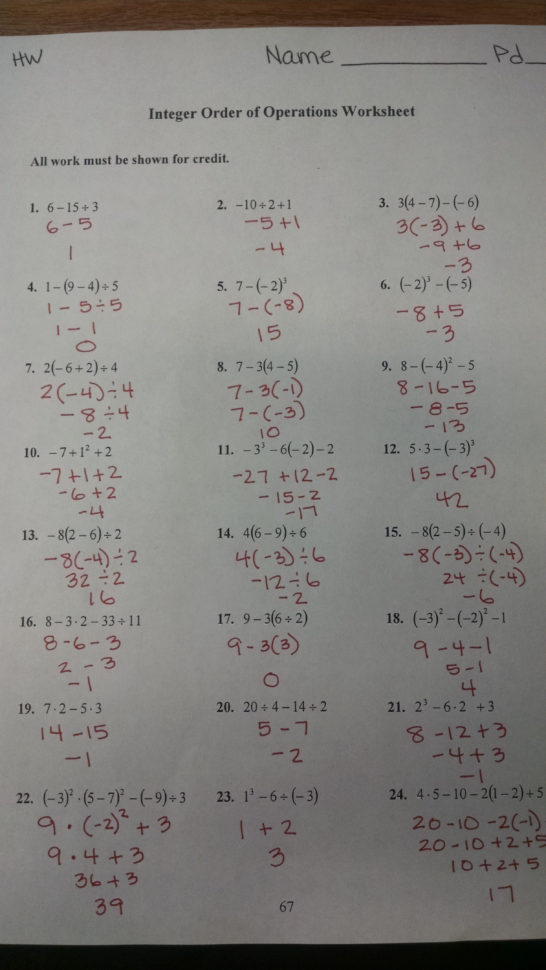 HW Name Pd
Integer Order of Operations Worksheet
All work must be shown for credit.
1. 6 – 15 ÷ 3
6 - 5
1
2. –10 ÷ 2 + 1
-5 + 1
-4
3. 3(4 – 7) – (– 6)
3(-3) + 6
-9 + 6
-3
4. 1 – (9 – 4) ÷ 5
1 - 5 ÷ 5
1 - 1
0
5. 7 – (–2)³
7 - (-8)
15
6. (–2)³ – (–5)
-8 + 5
-3
7. 2(–6 + 2) ÷ 4
2(-4) ÷ 4
-8 ÷ 4
-2
8. 7 – 3(4 – 5)
7 - 3(-1)
7 - (-3)
10
9. 8 – (– 4)² – 5
8 - 16 - 5
-8 - 5
-13
10. –7 + 1² + 2
-7 + 1 + 2
-6 + 2
-4
11. –3³ – 6(–2) – 2
-27 + 12 - 2
-15 - 2
-17
12. 5 · 3 – (–3)³
15 - (-27)
42
13. –8(2 – 6) ÷ 2
-8(-4) ÷ 2
32 ÷ 2
16
14. 4(6 – 9) ÷ 6
4(-3) ÷ 6
-12 ÷ 6
-2
15. –8(2 – 5) ÷ (–4)
-8(-3) ÷ (-4)
24 ÷ (-4)
-6
16. 8 – 3 · 2 – 33 ÷ 11
8 - 6 - 3
2 - 3
-1
17. 9 – 3(6 ÷ 2)
9 - 3(3)
0
18. (–3)² – (–2)² – 1
9 - 4 - 1
5 - 1
4
19. 7 · 2 – 5 · 3
14 - 15
-1
20. 20 ÷ 4 – 14 ÷ 2
5 - 7
-2
21. 2³ – 6 · 2 + 3
8 - 12 + 3
-4 + 3
-1
22. (–3)² · (5 – 7)² – (–9) ÷ 3
9 · (-2)² + 3
9 · 4 + 3
36 + 3
39
23. 1³ – 6 ÷ (–3)
1 + 2
3
24. 4 · 5 – 10 – 2(1 – 2) + 5
20 - 10 - 2(-1)
20 - 10 + 2 + 5
10 + 2 + 5
17
67